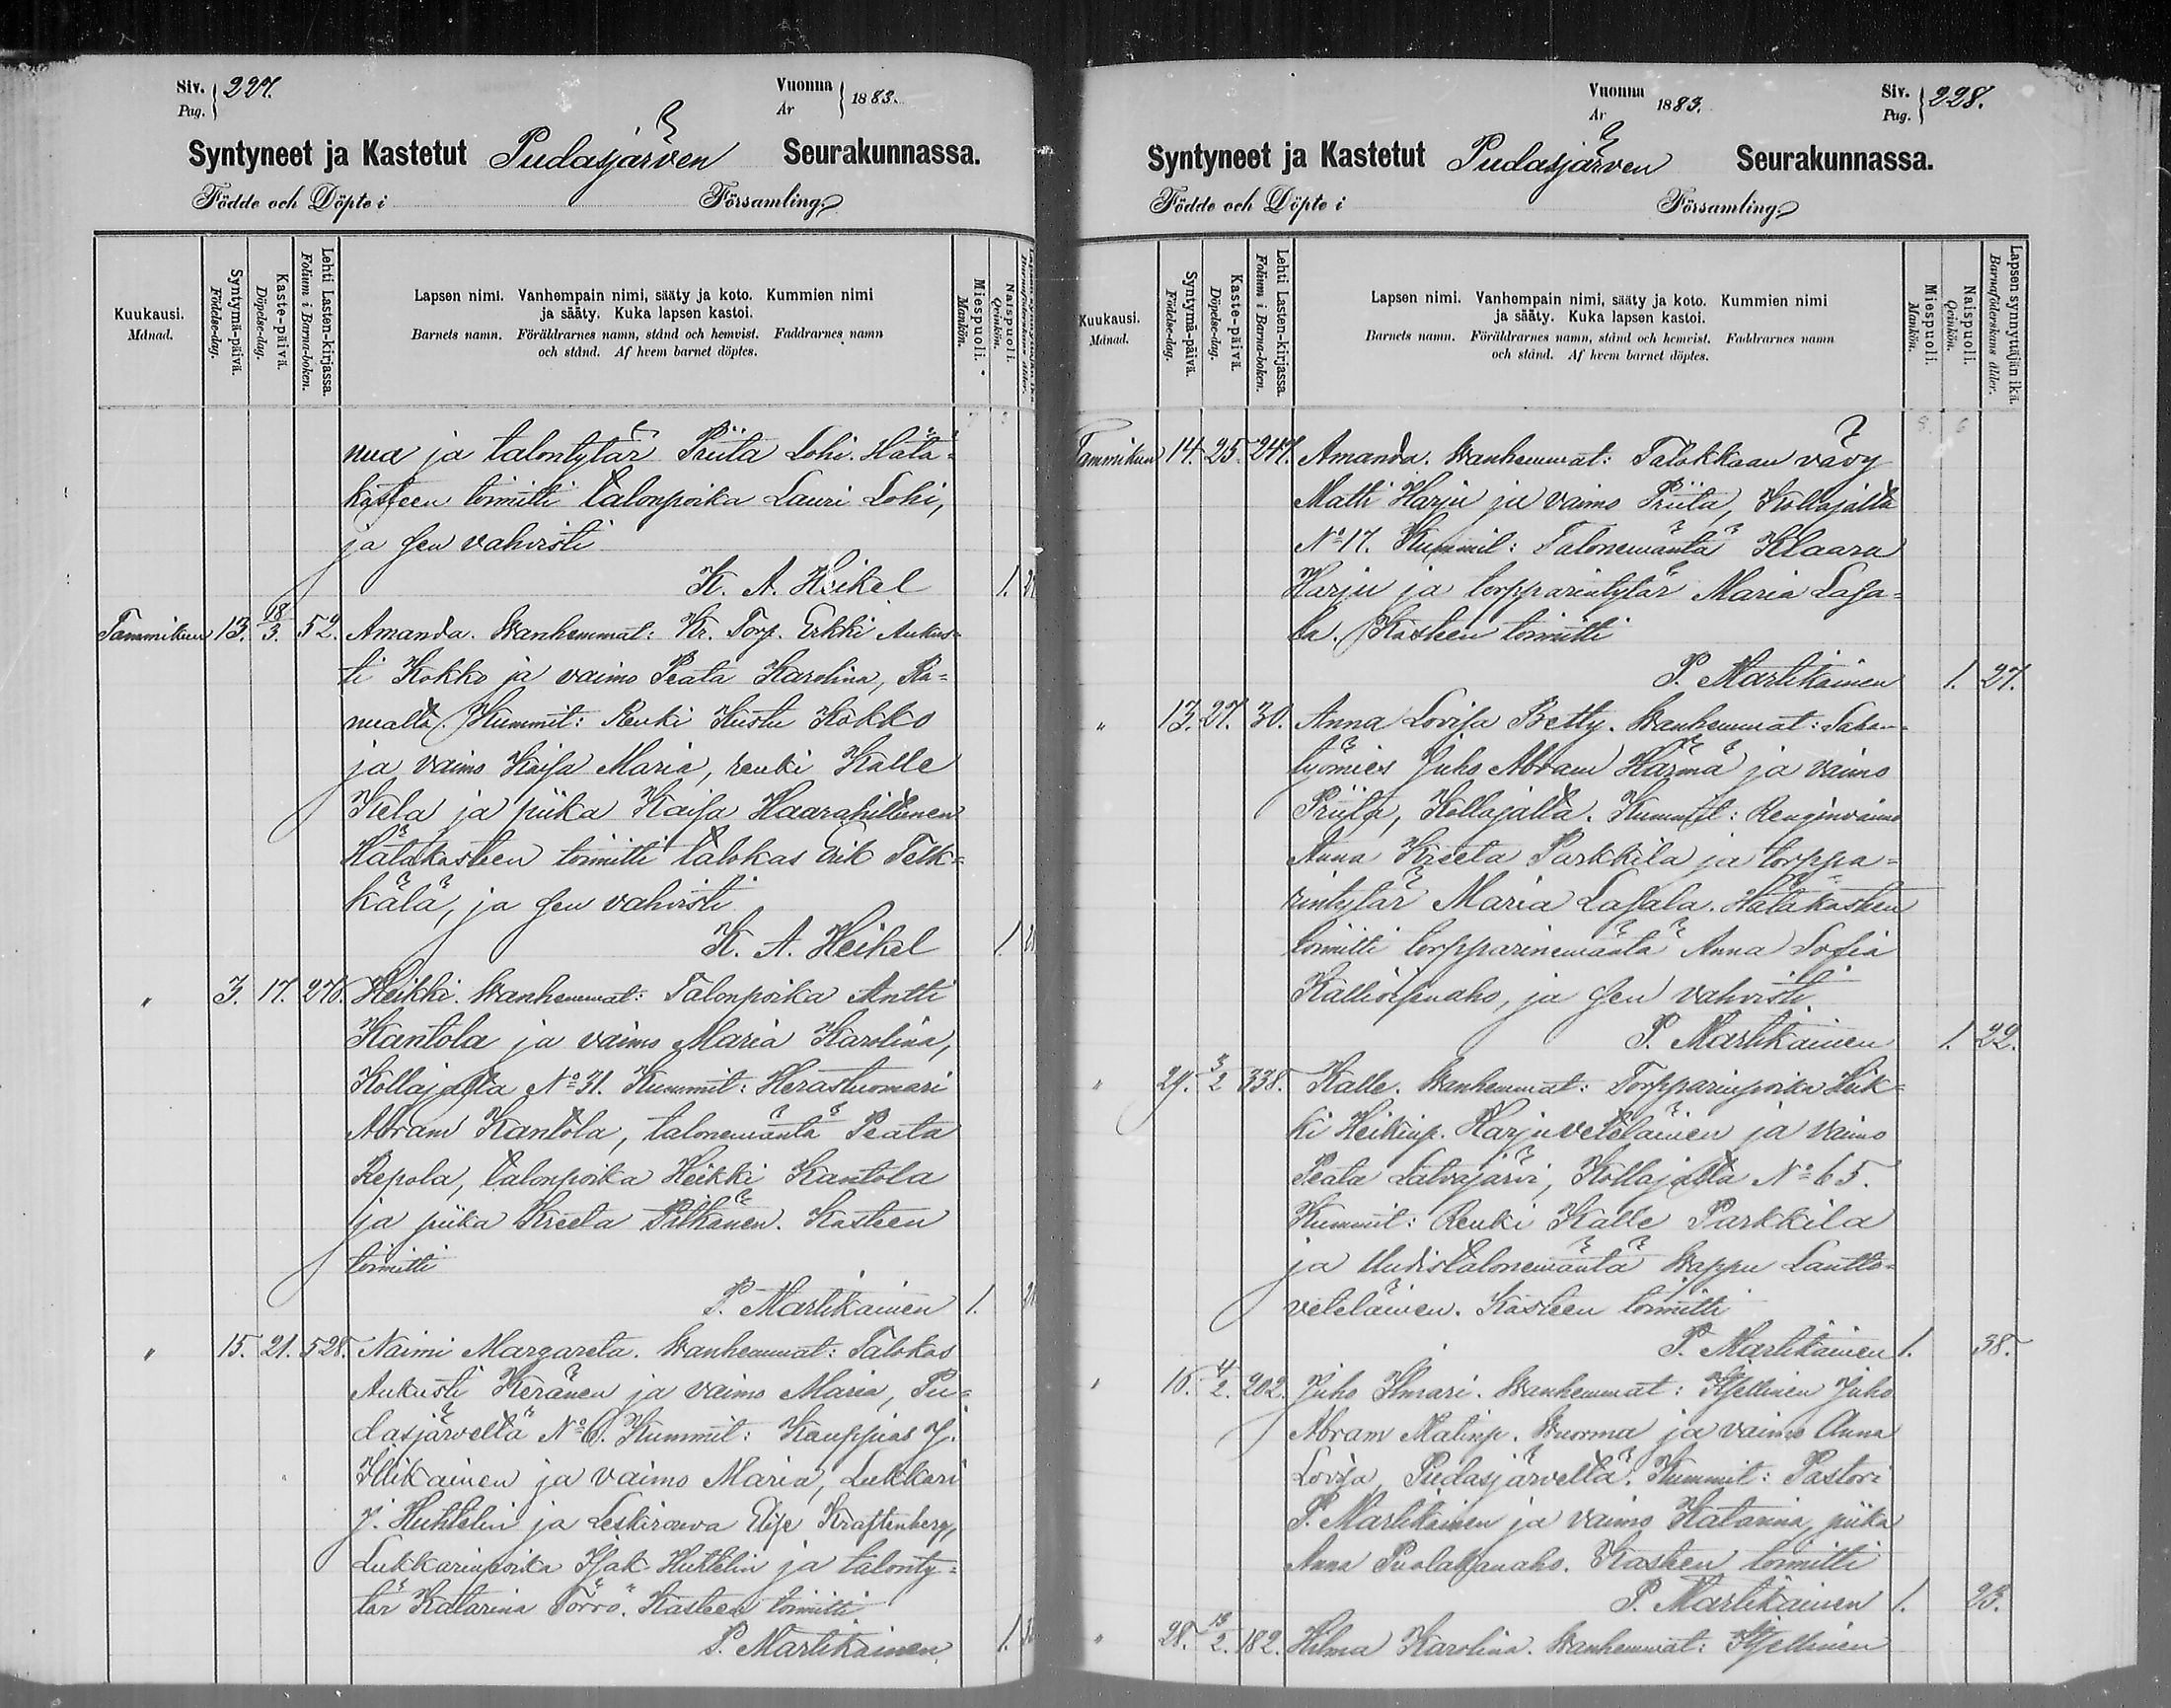 Siv. Pag. 227.
Vuonna År 1883.
Syntyneet ja Kastetut Pudasjärven Seurakunnassa.
Födde och Döpte i Församling.
Kuukausi. Månad.
Syntymä-päivä. Födelse-dag.
Kaste-päivä. Döpelse-dag.
Lehti Lasten-kirjassa. Folium i Barna-boken.
Lapsen nimi. Vanhempain nimi, sääty ja koto. Kummien nimi
ja sääty. Kuka lapsen kastoi.
Barnets namn. Föräldrarnes namn, stånd och hemvist. Faddrarnes namn
och stånd. Af hvem barnet döptes.
Miespuoli. Mankön.
Naispuoli. Qvinkön.
nua ja talontytär Priita Lohi. Hätä-
kasteen toimitti talonpoika Lauri Lohi,
ja sen vahvisti
K. A. Heikel 1.
Tammikuu 13. 18/3. 52. Amanda. Wanhemmat: Kr. Torp. Erkki Aukus-
ti Kokko ja vaimo Peata Karolina, Ra-
nualta. Kummit: Renki Kustu Kokko
ja vaimo Kaisa Maria, renki Kalle
Kela ja piika Kaisa Haarahiltunen
Hätäkasteen toimitti talokas Erik Telk-
kälä, ja sen vahvisti
K. A. Heikel 1.
" 3. 17. 276. Heikki. Wanhemmat: Talonpoika Antti
Kantola ja vaimo Maria Karolina,
Kollajalta No 31. Kummit: Herastuomari
Abram Kantola, talonemäntä Peata
Repola, talonpoika Heikki Kantola
ja piika Kreeta Pitkänen. Kasteen
toimitti
P. Martikainen 1.
" 15. 21. 528. Naimi Margareta. Wanhemmat: Talokas
Aukusti Keränen ja vaimo Maria, Pu-
dasjärveltä No 6. Kummit: Kauppias J.
Illikainen ja vaimo Maria, Lukkari
J. Huhtelin ja Leskirouva Elise Kraftenberg,
Lukkarinpoika Isak Huhtelin ja talonty-
tär Katarina Törrö. Kasteen toimitti
P. Martikainen 1.
Vuonna År 1883.
Siv. Pag. 228.
Syntyneet ja Kastetut Pudasjärven Seurakunnassa.
Födde och Döpte i Församling.
Kuukausi. Månad.
Syntymä-päivä. Födelse-dag.
Kaste-päivä. Döpelse-dag.
Lehti Lasten-kirjassa. Folium i Barna-boken.
Lapsen nimi. Vanhempain nimi, sääty ja koto. Kummien nimi
ja sääty. Kuka lapsen kastoi.
Barnets namn. Föräldrarnes namn, stånd och hemvist. Faddrarnes namn
och stånd. Af hvem barnet döptes.
Miespuoli. Mankön.
Naispuoli. Qvinkön.
Lapsen synnyttäjän ikä. Barnaföderskans ålder.
Tammikuu 14. 25. 247. Amanda. Wanhemmat: Talokkaan vävy
Matti Harju ja vaimo Priita, Kollajalta
No 17. Kummit: Talonemäntä Klaara
Harju ja torpparintytär Maria Lasa-
la. Kasteen toimitti
P. Martikainen 1. 27.
" 13. 27. 30. Anna Lovisa Betty. Wanhemmat: Sahan-
työmies Juho Abram Härmä ja vaimo
Priita, Kollajalta. Kummit: Renginvaimo
Anna Kreeta Parkkila ja torppa-
rintytär Maria Lasala. Hätäkasteen
toimitti torpparinemäntä Anna Sofia
Kallioisenaho, ja sen vahvisti
P. Martikainen 1. 22.
" 29. 3/2 338. Kalle. Wanhemmat: Torpparinpoika Heik-
ki Heikinp. Harjuveteläinen ja vaimo
Peata Latvajärvi, Kollajalta No 65.
Kummit: Renki Kalle Parkkila
ja Uudistalonemäntä Wappu Lantto-
veteläinen. Kasteen toimitti
P. Martikainen 1. 38.
" 16. 4/2. 202. Juho Ilmari. Wanhemmat: Itsellinen Juho
Abram Matinp. Wuorma ja vaimo Anna
Lovisa, Pudasjärveltä. Kummit: Pastori
P. Martikainen ja vaimo Katarina, piika
Anna Puolakanaho. Kasteen toimitti
P. Martikainen 1. 23.
" 28. 2. 182. Hilma Karolina. Wanhemmat: Itsellinen